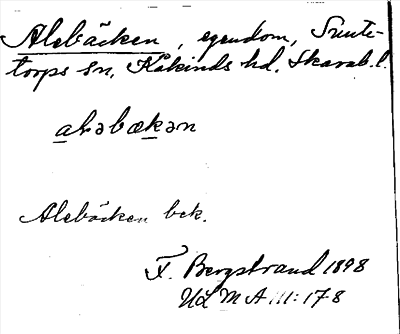 Alebäcken, egendom, Sunte-
torps sn, Kåkinds hd. Skarab. l.
aləbækən
Alebäcken bek.
F. Bergstrand 1898
ULMA 111:178